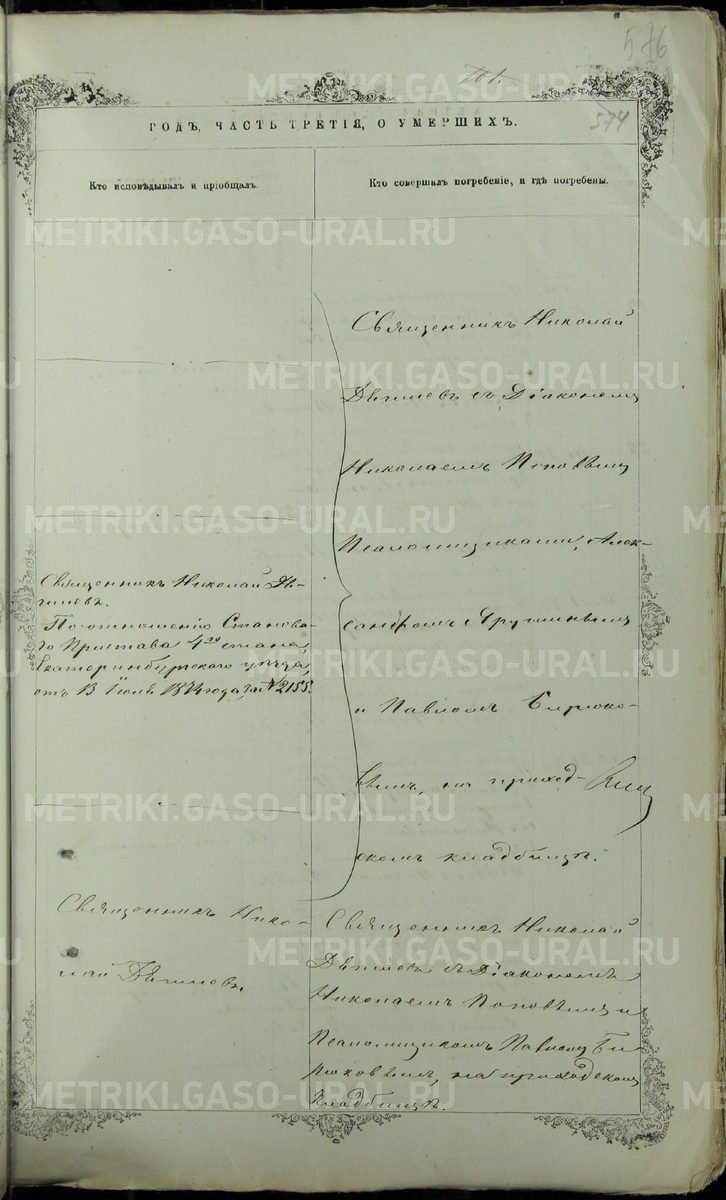 576
701.
574
ГОДЪ, ЧАСТЬ ТРЕТІЯ, О УМЕРШИХЪ.
Кто исповѣдывалъ и пріобщалъ.
Кто совершалъ погребеніе, и гдѣ погребены.
Священникъ Николай Дѣ-
По отношенію Станова-
го Пристава 4го стана,
Екатеринбургского уѣзда,
отъ 13 Іюля 1874 года за № 2155.
Священникъ Нико-
лай
Священникъ Николай
съ Діакономъ
Николаемъ Поповымъ
Псаломщиками, Алек-
сандромъ
и Павломъ Бирюко-
вымъ, на приход-
скомъ кладбищѣ.
Священникъ Николай
съ Діакономъ
Николаемъ Поповымъ и
Псаломщикомъ Павломъ Би-
рюковымъ, на приходскомъ
кладбищѣ.
METRIKI.GASO-URAL.RU